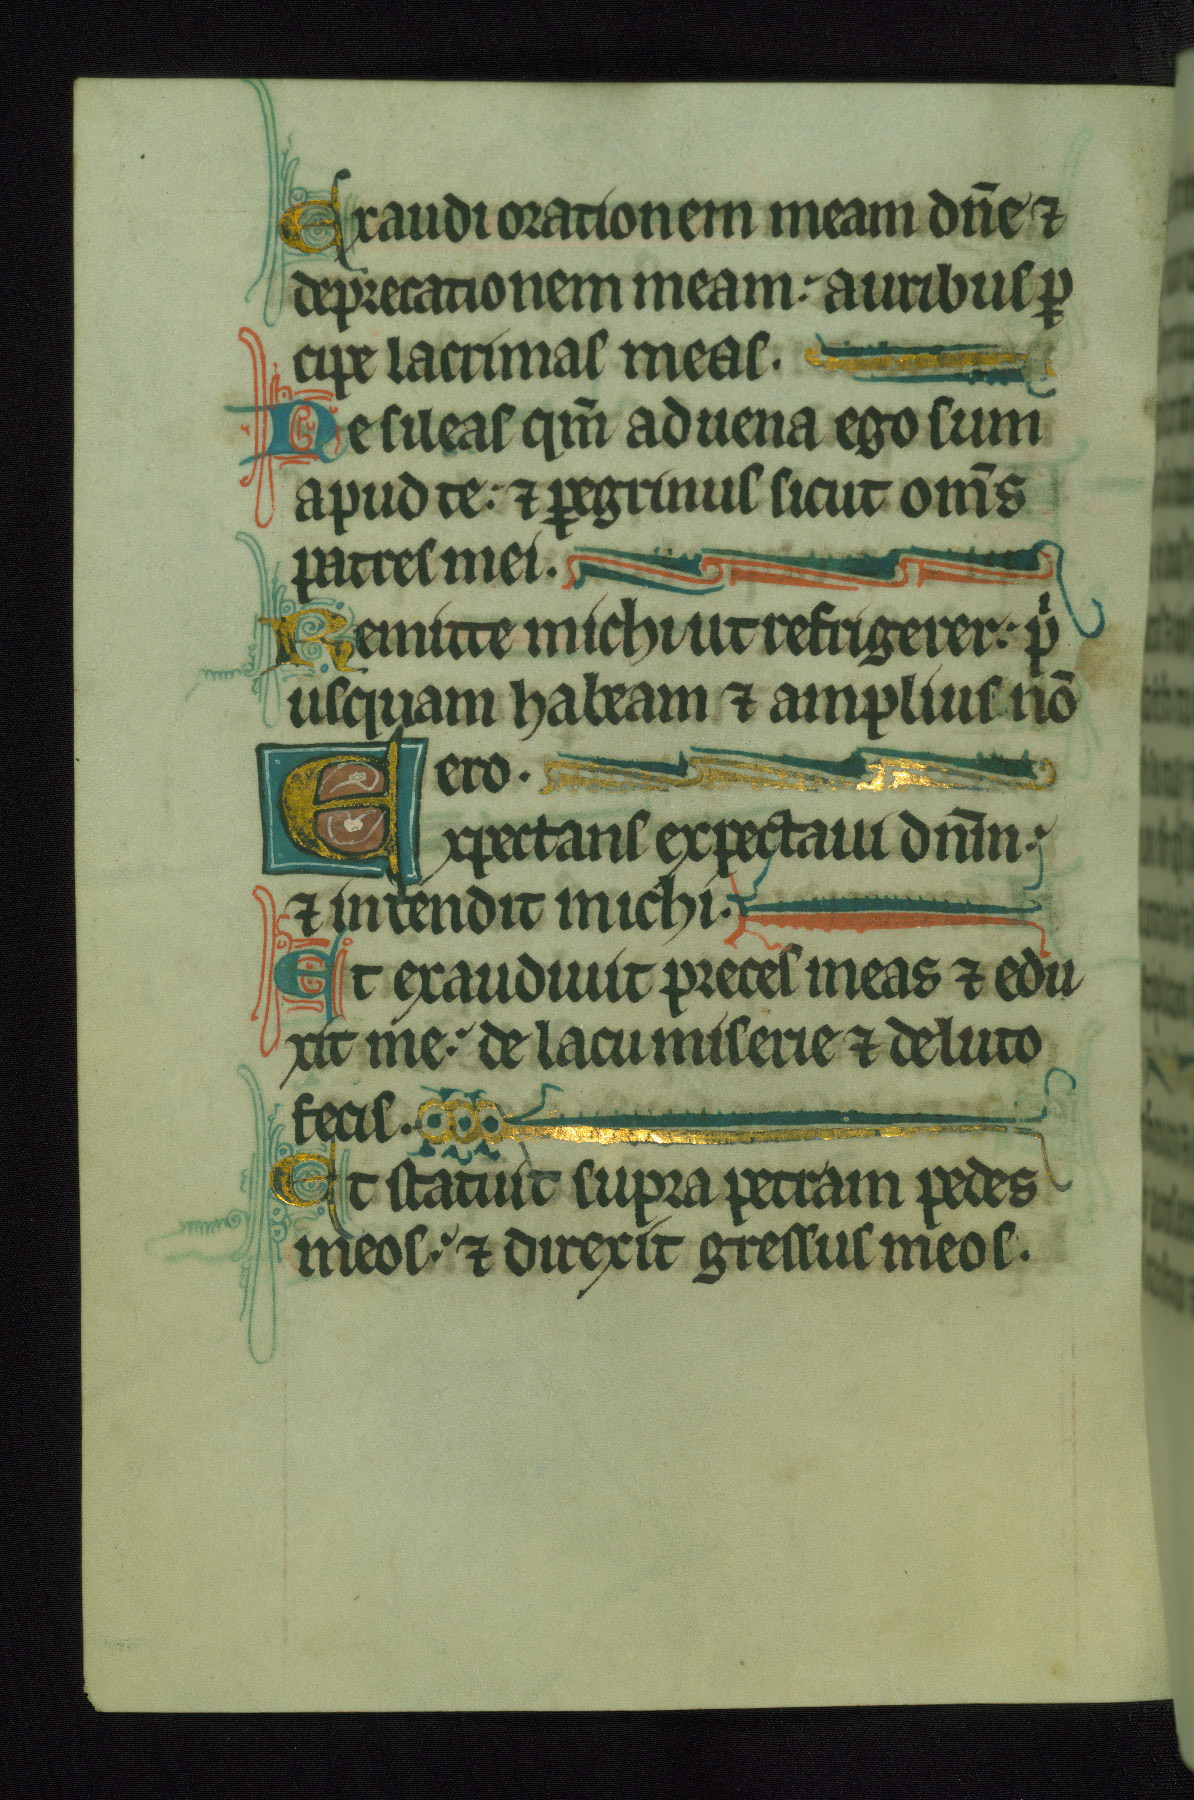 Exaudi orationem meam dn̄e ⁊
deprecationem meam: auribus ꝑ
cipe lacrimas meas.
Ne sileas qm̄ aduena ego sum
apud te: ⁊ ꝑegrinus sicut om̄s
patres mei.
Remitte michi ut refrigerer: pͥ
usquam habeam ⁊ amplius nō
ero.
Expectans expectaui dn̄m:
⁊ intendit michi.
Et exaudiuit preces meas ⁊ edu
xit me: de lacu miserie ⁊ de luto
fecis.
Et statuit supra petram pedes
meos: ⁊ direxit gressus meos.